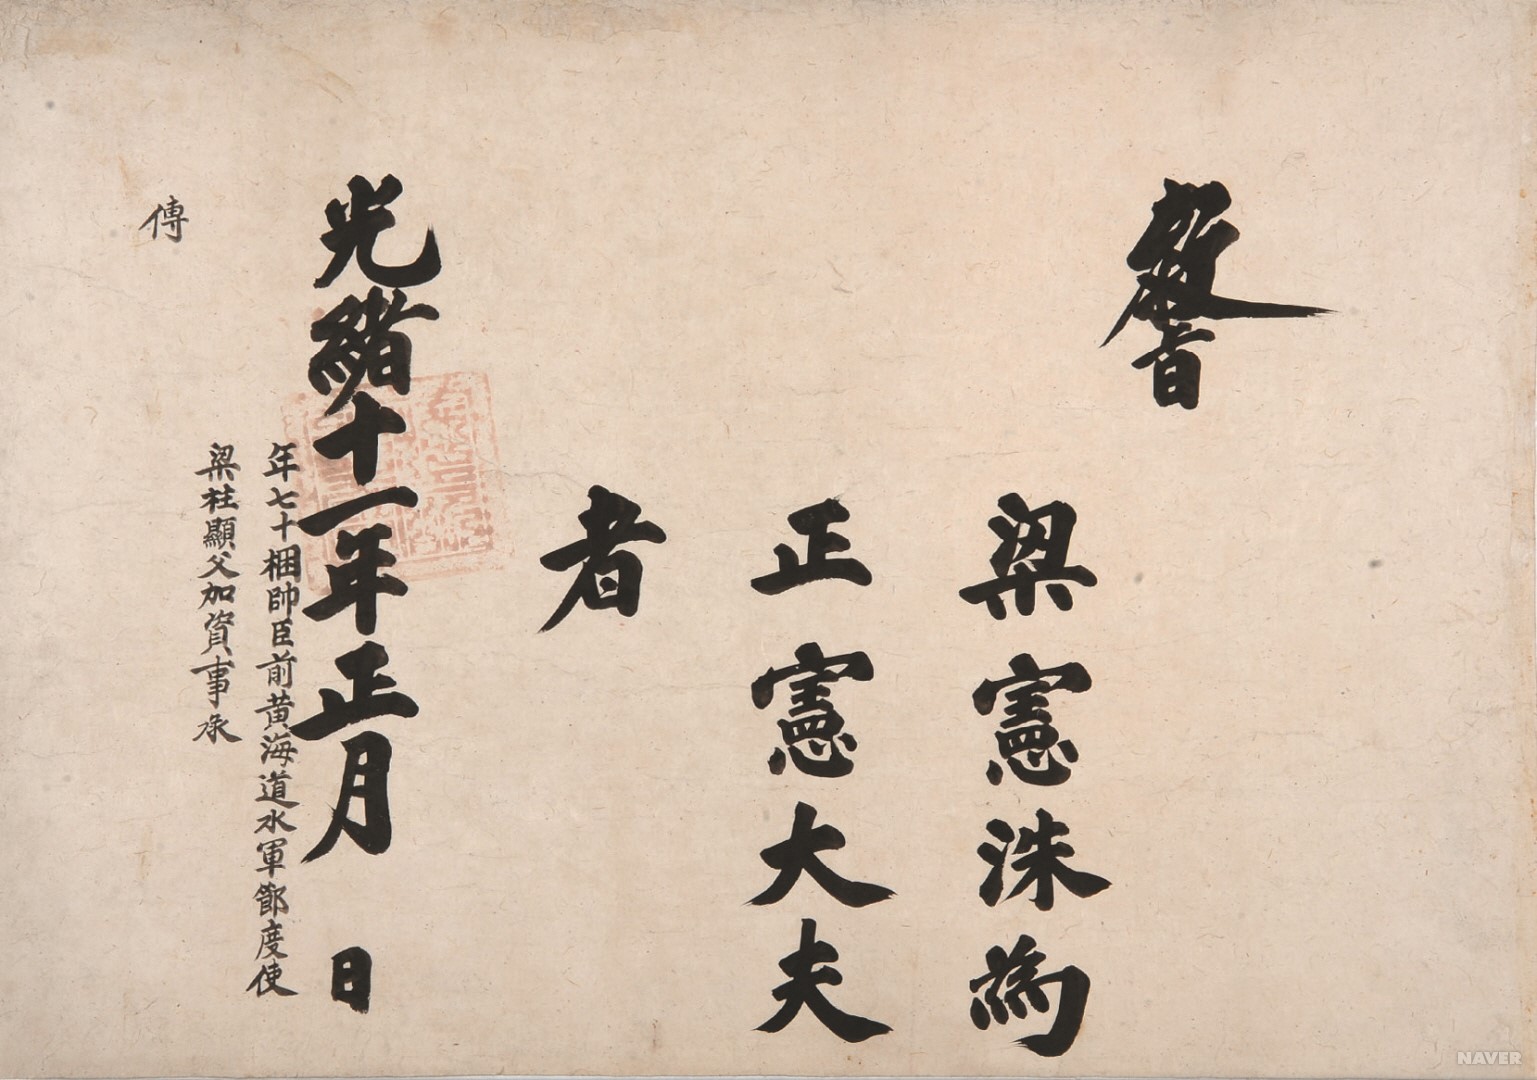 敎旨
梁憲洙爲
正憲大夫
者
光緖十一年正月 日
年七十梱帥臣前黃海道水軍節度使
梁柱顯父加資事承
傳
NAVER